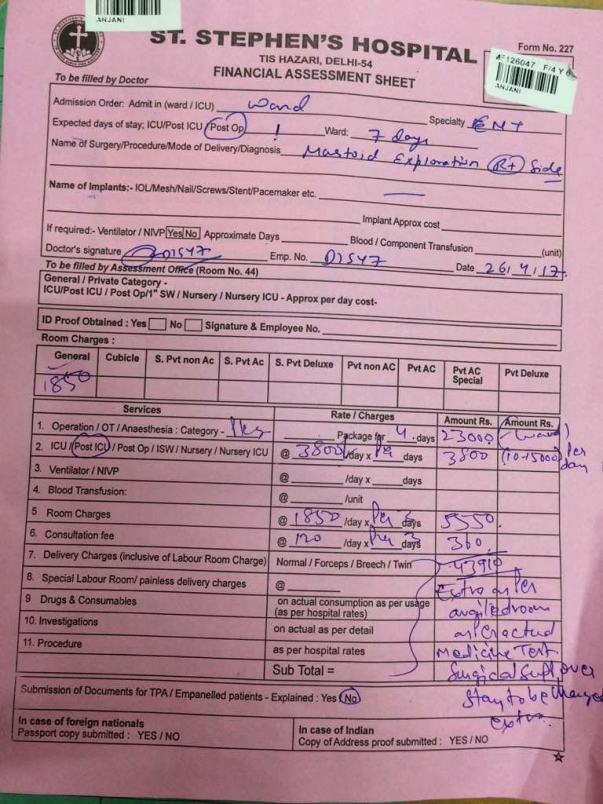 ANJANI
ST. STEPHEN'S HOSPITAL
TIS HAZARI, DELHI-54
FINANCIAL ASSESSMENT SHEET
Form No. 227
AF126047 F/4 Y
ANJANI
To be filled by Doctor
Admission Order: Admit in (ward / ICU) ward
Specialty ENT
Expected days of stay; ICU/Post ICU / Post Op 1 Ward: 7 days
Name of Surgery/Procedure/Mode of Delivery/Diagnosis Mastoid Exploration (Rt) Side
Name of Implants:- IOL/Mesh/Nail/Screws/Stent/Pacemaker etc.
Implant Approx cost
If required:- Ventilator / NIVP Yes No Approximate Days Blood / Component Transfusion (unit)
Doctor's signature D1547 Emp. No. D1547 Date 26/4/17.
To be filled by Assessment Office (Room No. 44)
General / Private Category -
ICU/Post ICU / Post Op/1" SW / Nursery / Nursery ICU - Approx per day cost-
ID Proof Obtained : Yes No Signature & Employee No.
Room Charges :
General Cubicle S. Pvt non Ac S. Pvt Ac S. Pvt Deluxe Pvt non AC Pvt AC Pvt AC Special Pvt Deluxe
1850
Services Rate / Charges Amount Rs. Amount Rs.
1. Operation / OT / Anaesthesia : Category - Package for 4 days 23000 (ward)
2. ICU / Post ICU / Post Op / ISW / Nursery / Nursery ICU @ 3800 /day x Per days 3800 (10-15000) Per day
3. Ventilator / NIVP @ /day x days
4. Blood Transfusion: @ /unit
5 Room Charges @ 1850 /day x Per 3 days 5550
6. Consultation fee @ 120 /day x Per 3 days 360
7. Delivery Charges (inclusive of Labour Room Charge) Normal / Forceps / Breech / Twin 43910
8. Special Labour Room/ painless delivery charges @ Extra as Per
9 Drugs & Consumables on actual consumption as per usage (as per hospital rates) room
10. Investigations on actual as per detail
11. Procedure as per hospital rates Medicine Test
Sub Total = Surgical over
Stay to be charged
extra.
Submission of Documents for TPA / Empanelled patients - Explained : Yes / No
In case of foreign nationals
Passport copy submitted : YES / NO
In case of Indian
Copy of Address proof submitted : YES / NO